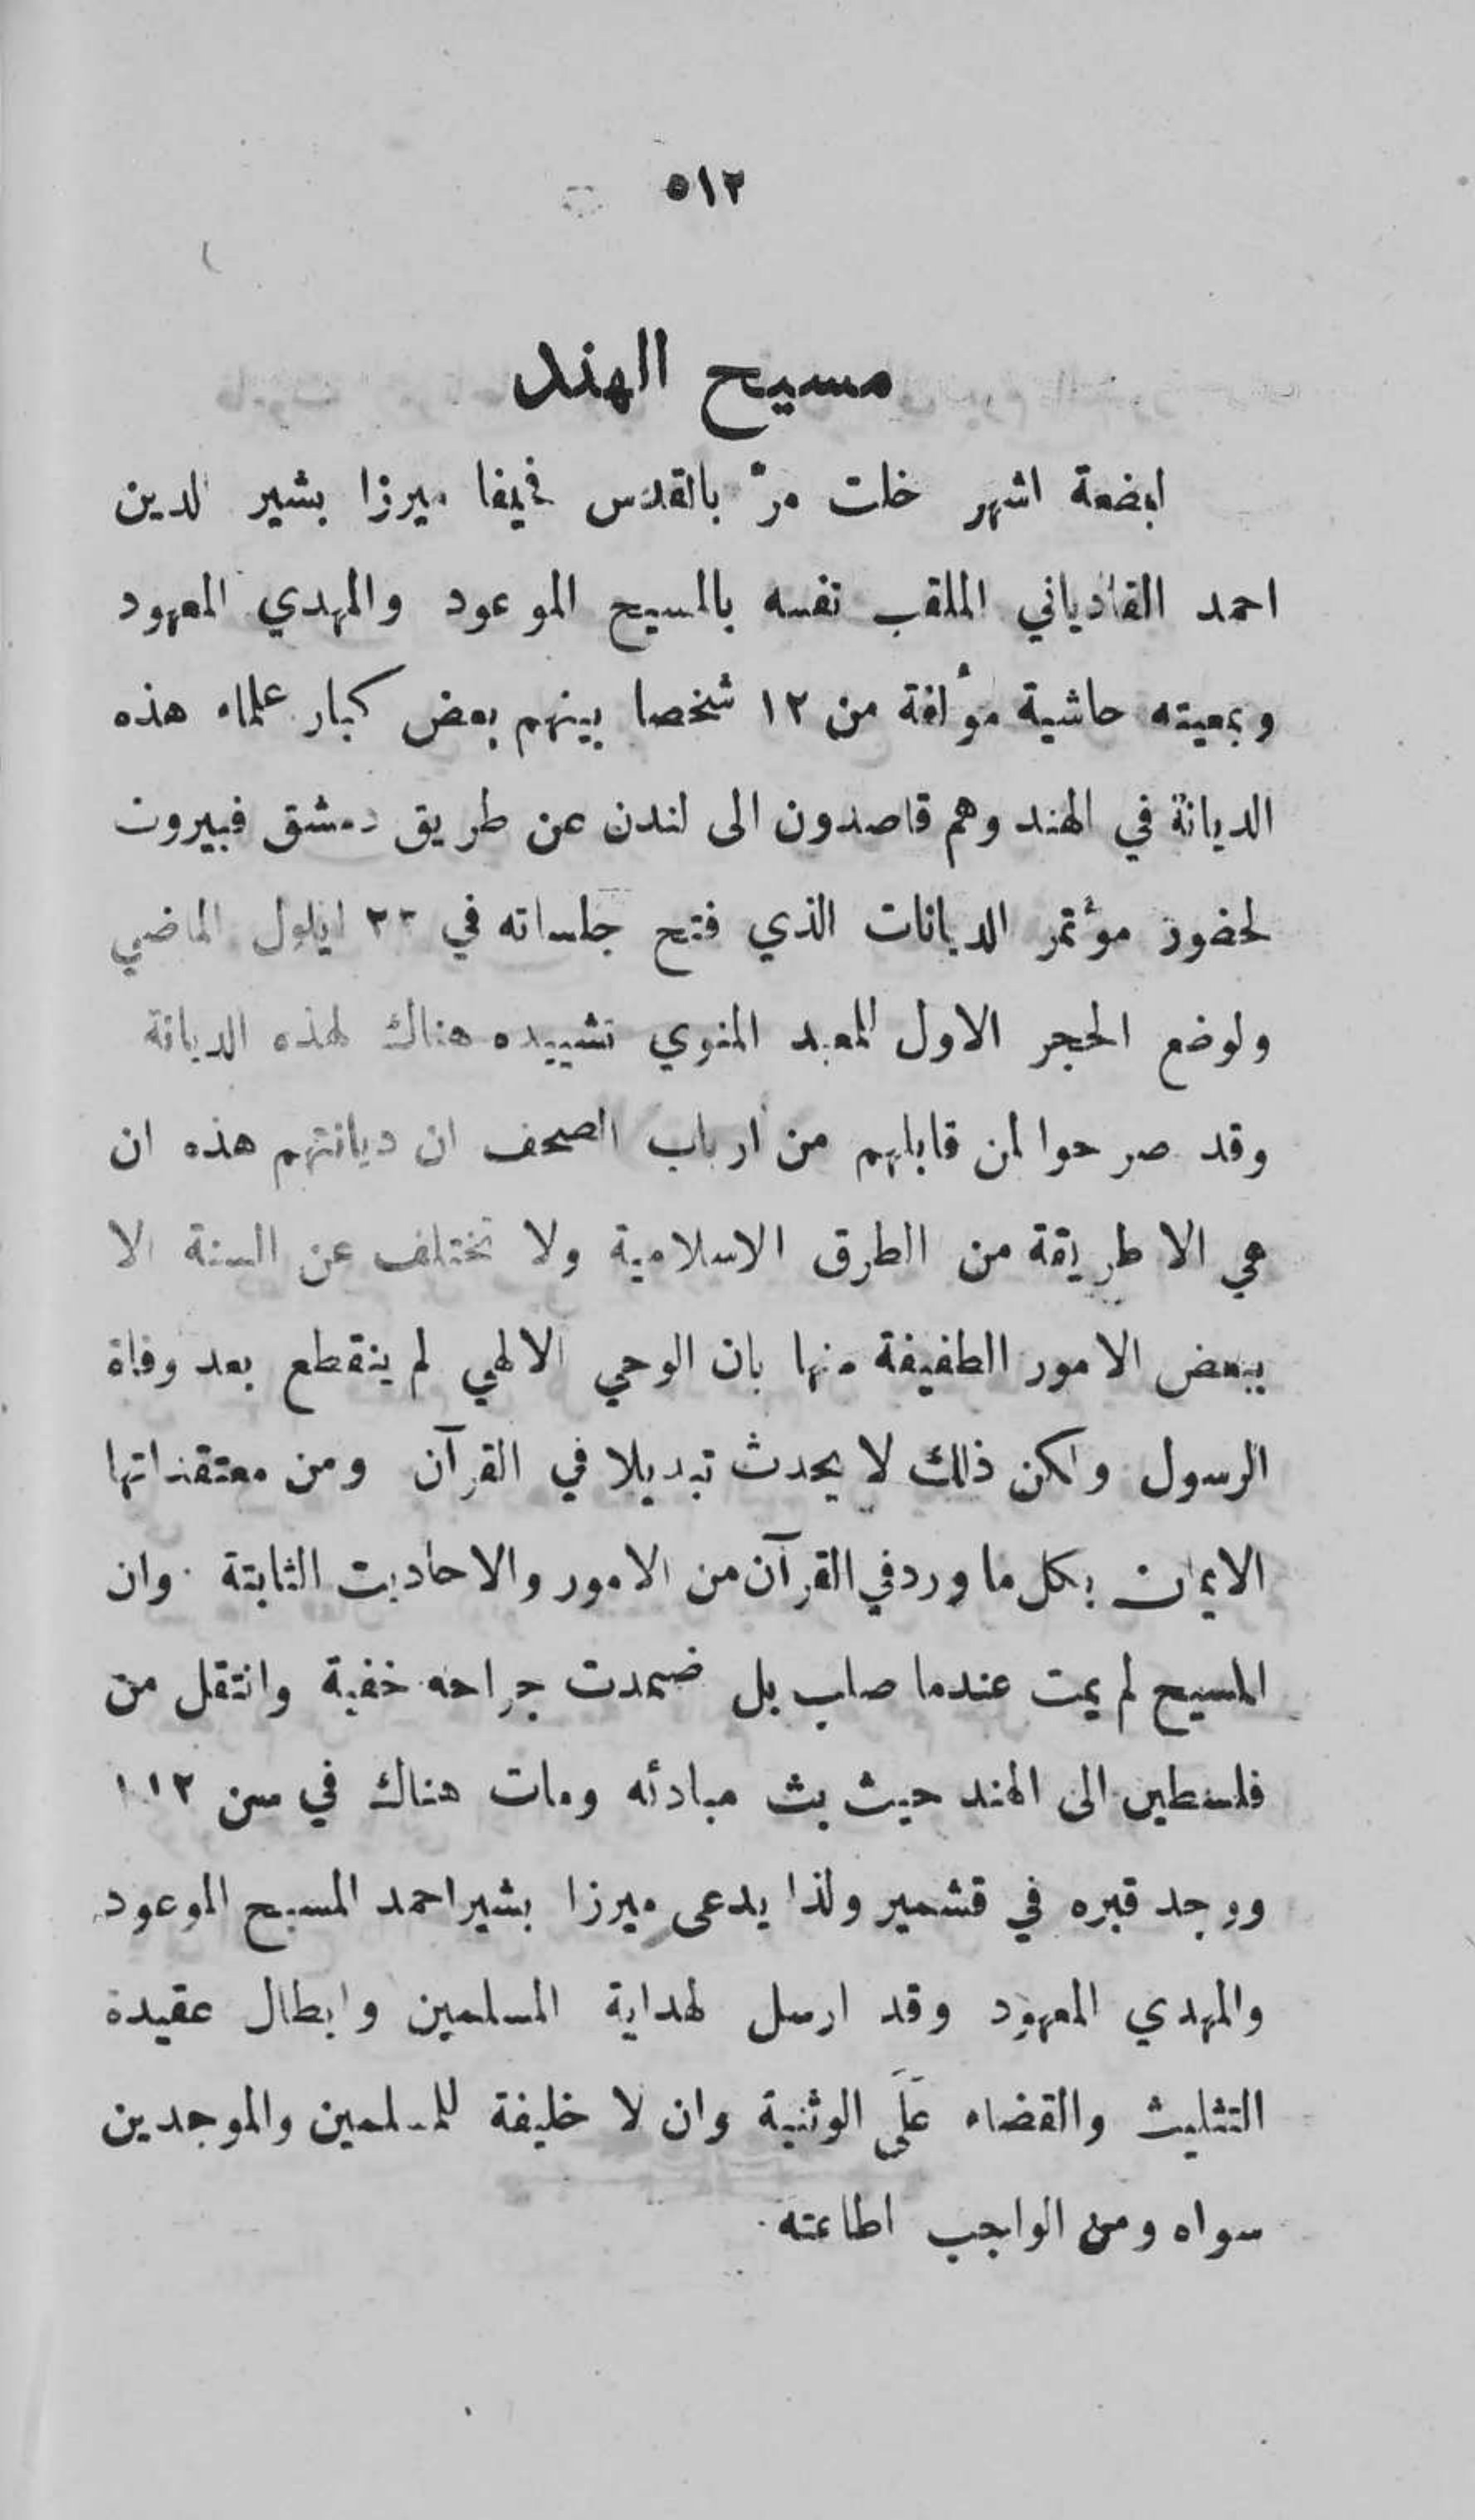 ٥١٢
مسيح الهند
لبضعة اشهر خلت مرّ بالقدس فحيفا ميرزا بشير الدين
احمد القادياني الملقب نفسه بالمسيح الموعود والمهدي المعهود
وبمعيته حاشية مؤلفة من ١٢ شخصا بينهم بعض كبار علماء هذه
الديانة في الهند وهم قاصدون الى لندن عن طريق دمشق فبيروت
لحضور مؤتمر الديانات الذي فتح جلساته في ايلول الماضي
ولوضع الحجر الاول للمعبد المنوي تشييده هناك لهذه الديانة
وقد صرحوا لمن قابلهم من ارباب الصحف ان ديانتهم هذه ان
هي الا طريقة من الطرق الاسلامية ولا تختلف عن السنة الا
ببعض الامور الطفيفة منها بان الوحي الالهي لم ينقطع بعد وفاة
الرسول ولكن ذلك لا يحدث تبديلا في القرآن ومن معتقداتها
الايمان بكل ما ورد في القرآن من الامور والاحاديث الثابتة . وان
المسيح لم يمت عندما صلب بل ضمدت جراحه خفية وانتقل من
فلسطين الى الهند حيث بث مبادئه ومات هناك في سن ١١٢
ووجد قبره في قشمير ولذا يدعى ميرزا بشير احمد المسيح الموعود
والمهدي المعهود وقد ارسل لهداية المسلمين وابطال عقيدة
التثليث والقضاء عَلَى الوثنية وان لا خليفة للمسلمين والموحدين
سواه ومن الواجب اطاعته .